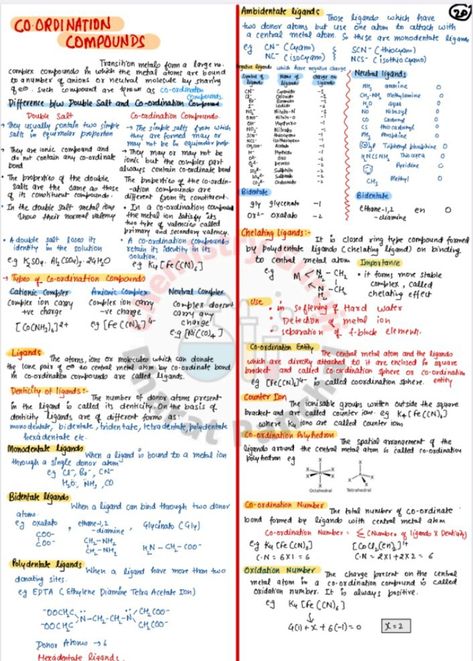 CO-ORDINATION
COMPOUNDS
Transition metals form a large no.
complex compounds in which the metal atoms are bound
to a number of anions or neutral molecule by sharing
of e⊖. such compound are known as co-ordination
compounds
Difference b/w Double Salt and Co-ordination Compound
Double Salt
They usually contain two simple
salts in equimolar proportion
They are ionic compound and
do not contain any co-ordinate
bond
The properties of the double
salts are the same as those
of its constituent compounds.
In the double salt metal ions
show their normal valency
A double salt loses its
identity in the solution
eg K2SO4. Al2(SO4)3.24H2O
Co-ordination Compounds
The simple salts from which
they are formed may or
may not be in equimolar prop.
They may or may not be
ionic but the complex part
always contain co-ordinate bond
The properties of the co-ordin-
ation compounds are
different from its constituent.
In a co-ordination compound
the metal ion satisfies its
two type of valencies called
primary and secondary valency.
A co-ordination compounds
retain its identity in the
solution.
eg K4[Fe(CN)6]
Types of Co-ordination Compounds
Cationic Complex
Complex ion carry
+ve charge
[Co(NH3)6]2+
Anionic Complex
Complex ion carry
-ve charge
eg [Fe(CN)6]4-
Neutral Complex
Complex doesn't
carry any
charge
eg [Ni(CO)4]
Ligands
The atoms, ions or molecules which can donate
the lone pair of e⊖ to central metal atom by co-ordinate bond
in co-ordination compounds are called ligands.
Denticity of ligands:-
The number of donor atoms present
in the ligand is called its denticity. On the basis of
denticity ligands are of different forms as:
monodentate, bidentate, tridentate, tetradentate, polydentate
hexadentate etc.
Monodentate ligands
When a ligand is bound to a metal ion
through a single donor atom
eg Cl-, Br-, CN-
H2O, NH3, CO
Bidentate ligands
When a ligand can bind through two donor
atoms
eg oxalato, ethane-1,2-
-diamine, Glycinato (Gly)
COO-
COO-
CH2-NH2
CH2-NH2
H2N-CH2-COO-
Polydentate ligands
When a ligand have more than two
donating sites.
eg EDTA (Ethylene Diamine Tetra Acetate Ion)
-OOCH2C
-OOCH2C
N-CH2-CH2-N
CH2COO-
CH2COO-
Donor Atoms → 6
Hexadentate ligands.
Ambidentate ligands
Those ligands which have
two donor atoms but use one atom to attach with
a central metal atom. So these are monodentate ligands
eg CN- (cyano)
NC- (isocyano)
SCN- (thiocyano)
NCS- (isothiocyano)
Negative ligands which have negative charge
Symbol of
ligands
Name of
ligand
charge on
ligand
Neutral ligands
NH3 ammine 0
H2O aqua 0
CO carbonyl 0
Bidentate
gly glycinato -1
Ox2- oxalato -2
Bidentate
ethane-1,2
-diamine
en
0
Chelating ligands:-
It is closed ring type compound formed
by polydentate ligands (chelating ligand) on binding
to central metal atom
eg M
N-CH2
N-CH2
Importance
it forms more stable
complex, called
chelating effect
Use
in softening of Hard water
Detection of metal ion
separation of f-block elements.
Co-ordination Entity
The central metal atom and the ligands
which are directly attached to it are enclosed in square
bracket and called co-ordination sphere or co-ordination
entity
eg [Fe(CN)6]4- is called coordination sphere.
Counter Ion
The ionisable groups written outside the square
bracket and are called counter ion eg K4[Fe(CN)6]
where K4 ions are called counter ions
Co-ordination Polyhedron
The spatial arrangement of the
ligands around the central metal atom is called co-ordination
polyhedron eg
Octahedral
Tetrahedral
Co-ordination Number
The total number of co-ordinate
bond formed by ligands with central metal atom
Co-ordination Number: = Σ(Number of ligands X Denticity)
eg K4[Fe(CN)6]
C·N = 6X1 = 6
[CoCl2(en)2]+
C·N = 2X1+2X2 = 6
Oxidation Number
The charge present on the central
metal atom in a co-ordination compound is called
oxidation number. It is always positive.
eg K4[Fe(CN)6]
4(1)+X+6(-1)=0
X=2